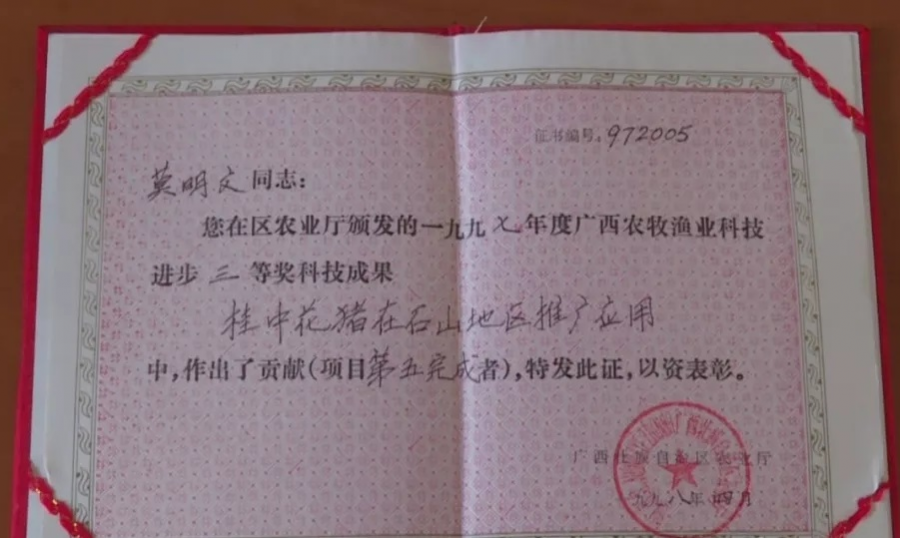 证书编号:972005
莫明文同志:
您在区农业厅颁发的一九九七年度广西农牧渔业科技
进步三等奖科技成果
桂中花猪在石山地区推广应用
中,作出了贡献(项目第五完成者),特发此证,以资表彰。
广西壮族自治区农业厅
一九九八年四月